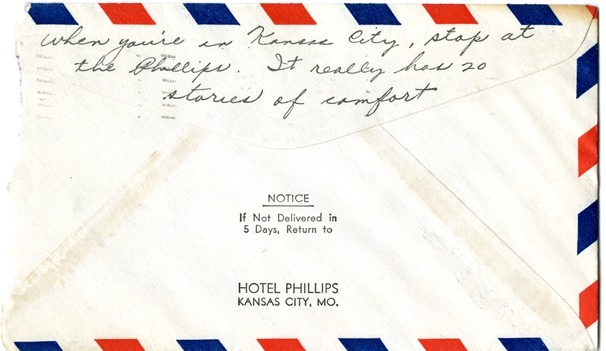 When you're in Kansas City, stop at
the Phillips. It really has 20
stories of comfort
NOTICE
If Not Delivered in
5 Days, Return to
HOTEL PHILLIPS
KANSAS CITY, MO.